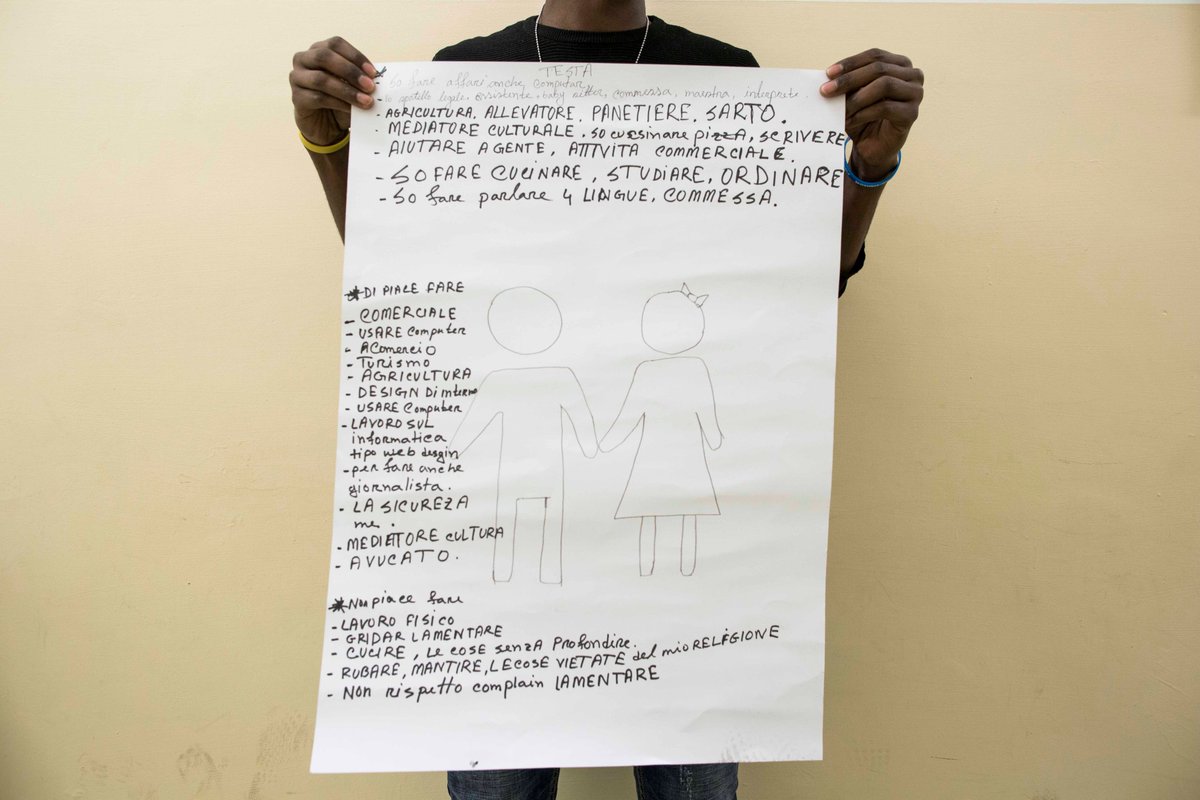 TESTA
- So fare affari anche computar
- assistente, baby sitter, commessa, maestra, interprete.
- AGRICULTURA, ALLEVATORE, PANETIERE, SARTO.
- MEDIATORE CULTURALE. so cussinare pizzA, SCRIVERE
- AIUTARE A GENTE, ATTIVTA COMMERCIALE.
- SO FARE CUCINARE, STUDIARE, ORDINARE
- So fare parlare 4 LINGUE, COMMESSA.
* DI PIACE FARE
- COMERCIALE
- USARE Computer
- AComercio
- Turismo
- AGRICULTURA
- DESIGN Di interno
- USARE Computer
- LAVORO SUL
informatica
tipo web desgin
- per fare anche
giornalista.
- LA SICUREZA
me.
- MEDIETORE CULTURA
- AVVUCATO.
* Non piace fare
- LAVORO FISICO
- GRIDAR LAMENTARE
- CUCIRE, LE COSE SENZA PROfondire.
- RUBARE, MANTIRE, LE COSE VIETATE del mio RELÈGIONE
- NON rispetto complain LAMENTARE